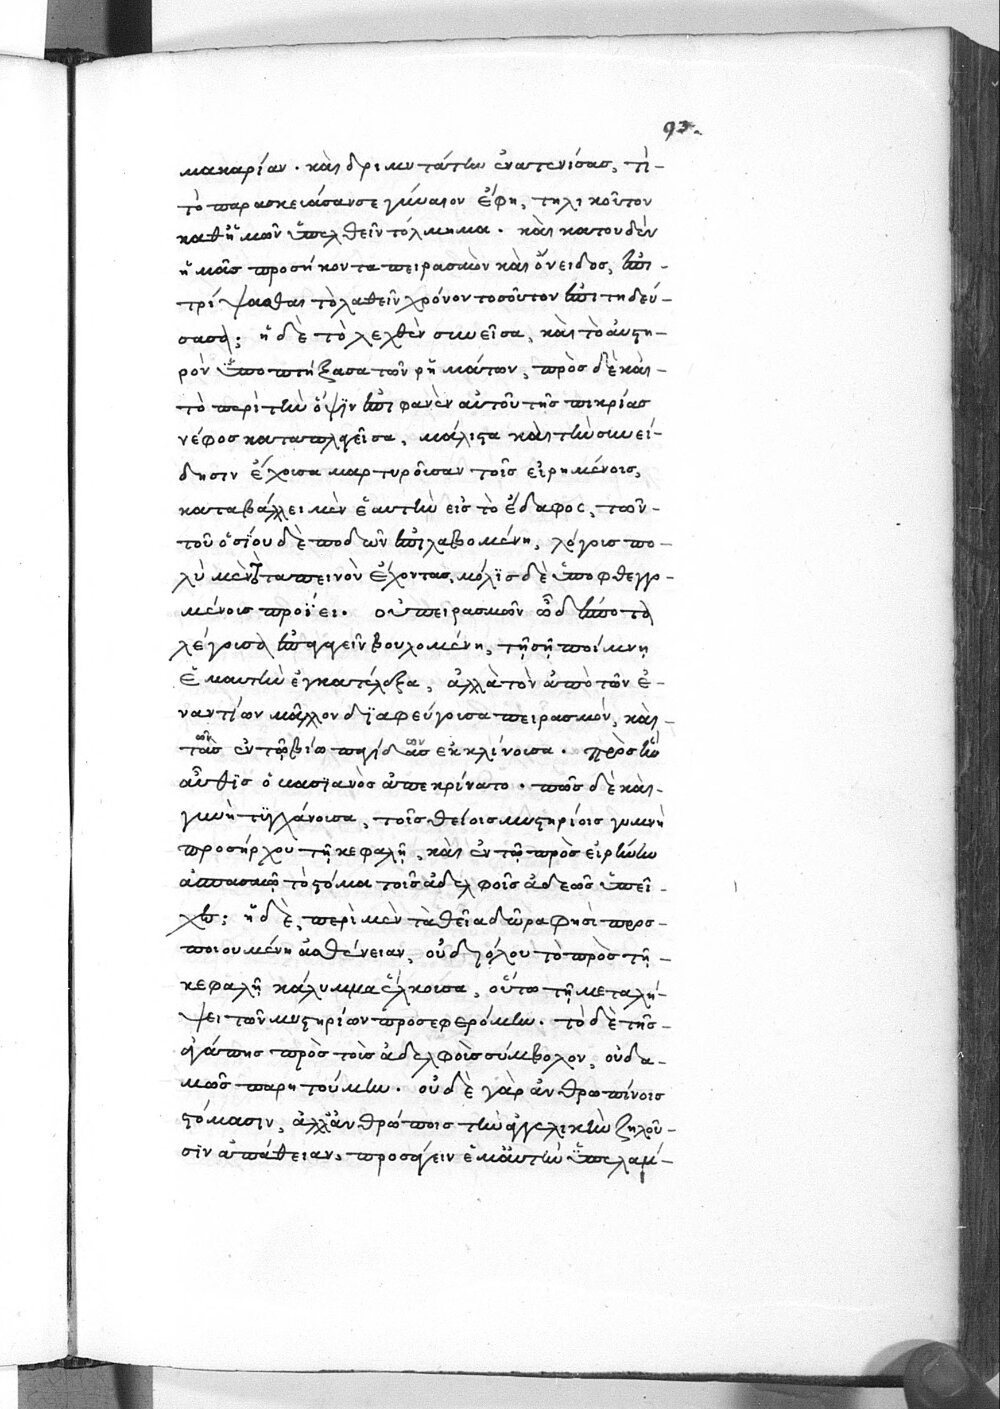 93.
μακαρίαν. καὶ δριμυτάτω ἐνατενίσας, τί
τὸ παρασκευάσαν σε γύναιον ἔφη, τηλικοῦτον
καθ' ἡμῶν ὑπελθεῖν τόλμημα. καὶ κατουδὲν
ἡμᾶς προσήκοντα πειρασμὸν καὶ ὄνειδος, ἐπι-
τρίψασθαι τὸ λαθεῖν χρόνον τοσοῦτον ἐπιτηδεύ-
σασα; ἡ δὲ τὸ λεχθὲν συνεῖσα, καὶ τὸ αὐστη-
ρὸν ὑποπτήξασα τῶν ῥημάτων, πρὸς δὲ καὶ
τὸ περὶ τὴν ὄψιν ἐπιφανὲν αὐτοῦ τῆς πικρίας
νέφος καταπλαγεῖσα, μάλιστα καὶ τὴν συνεί-
δησιν ἔχουσα μαρτυροῦσαν τοῖς εἰρημένοις,
καταβάλλει μὲν ἑαυτὴν εἰς τὸ ἔδαφος, τῶν
τοῦ ὁσίου δὲ ποδῶν ἐπιλαβομένη, λόγοις πο-
λὺ μὲν τὸ ταπεινὸν ἔχοντας, μόλις δὲ ὑποφθεγγο-
μένοις προΐει. οὐ πειρασμῶν
λέγουσα ἐπαγαγεῖν βουλομένη, τῇ σῇ ποίμνῃ
ἐμαυτὴν ἐγκατέλεξα, ἀλλὰ τὸν ἀπὸ τῶν ἐ-
ναντίων μᾶλλον διαφεύγουσα πειρασμὸν, καὶ
τὰς ἐν τῷ βίῳ παγίδας ἐκκλίνουσα. πρὸς ἣν
αὖθις ὁ μασιανὸς ἀπεκρίνατο. πῶς δὲ καὶ
γυνὴ τυγχάνουσα, τοῖς θείοις μυστηρίοις γυμνῇ
προσήρχου τῇ κεφαλῇ, καὶ ἐν τῷ πρὸς εἰρήνην
ἀσπασμῷ τὸ στόμα τοῖς ἀδελφοῖς ἀδεῶς ὑπεῖ-
χες; ἡ δὲ, περὶ μὲν τὰ θεῖα δῶρα φησὶ προσ-
ποιουμένη ἀσθένειαν, οὐδ' ὅλου τὸ πρὸς τῇ
κεφαλῇ κάλυμμα ἕλκουσα, οὕτω τῇ μεταλή-
ψει τῶν μυστηρίων προσεφερόμην. τὸ δὲ τῆς
ἀγάπης πρὸς τοὺς ἀδελφοὺς σύμβολον, οὐδα-
μῶς παρῃτούμην. οὐδὲ γὰρ ἀνθρωπίνοις
στόμασιν, ἀλλ' ἀνθρώποις τὴν ἀγγελικὴν ζηλοῦ-
σιν ἀπάθειαν, προσάγειν ἐμαυτὴν ὑπελαμ-